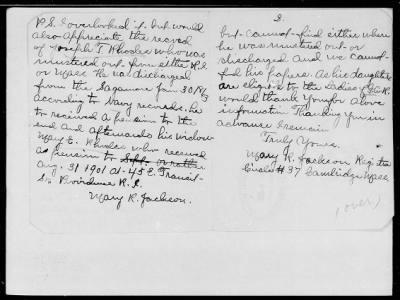 P.S. I overlooked it but would
also appreciate the record
of Joseph T Rhodes who was
mustered out from either R.I.
or Mass He was discharged
from the Sagamore Jan 30/8/
according to Navy records. he
to received a pension to the
end and afterwards his widow
Mary E. Rhodes who received
a pension to Sept. or rather
Aug. 31 1901 at 45 E. Transit
St. Providence R.I.
Mary R. Jackson.
2.
but cannot find either where
he was mustered out or
discharged and we cannot
find his papers. As his daughters
are eligible to the Ladies of G.A.R.
would thank you for above
information Thanking you in
advance I remain
Truly Yours.
Mary R. Jackson
Circle # 37 Cambridge Mass
(over)